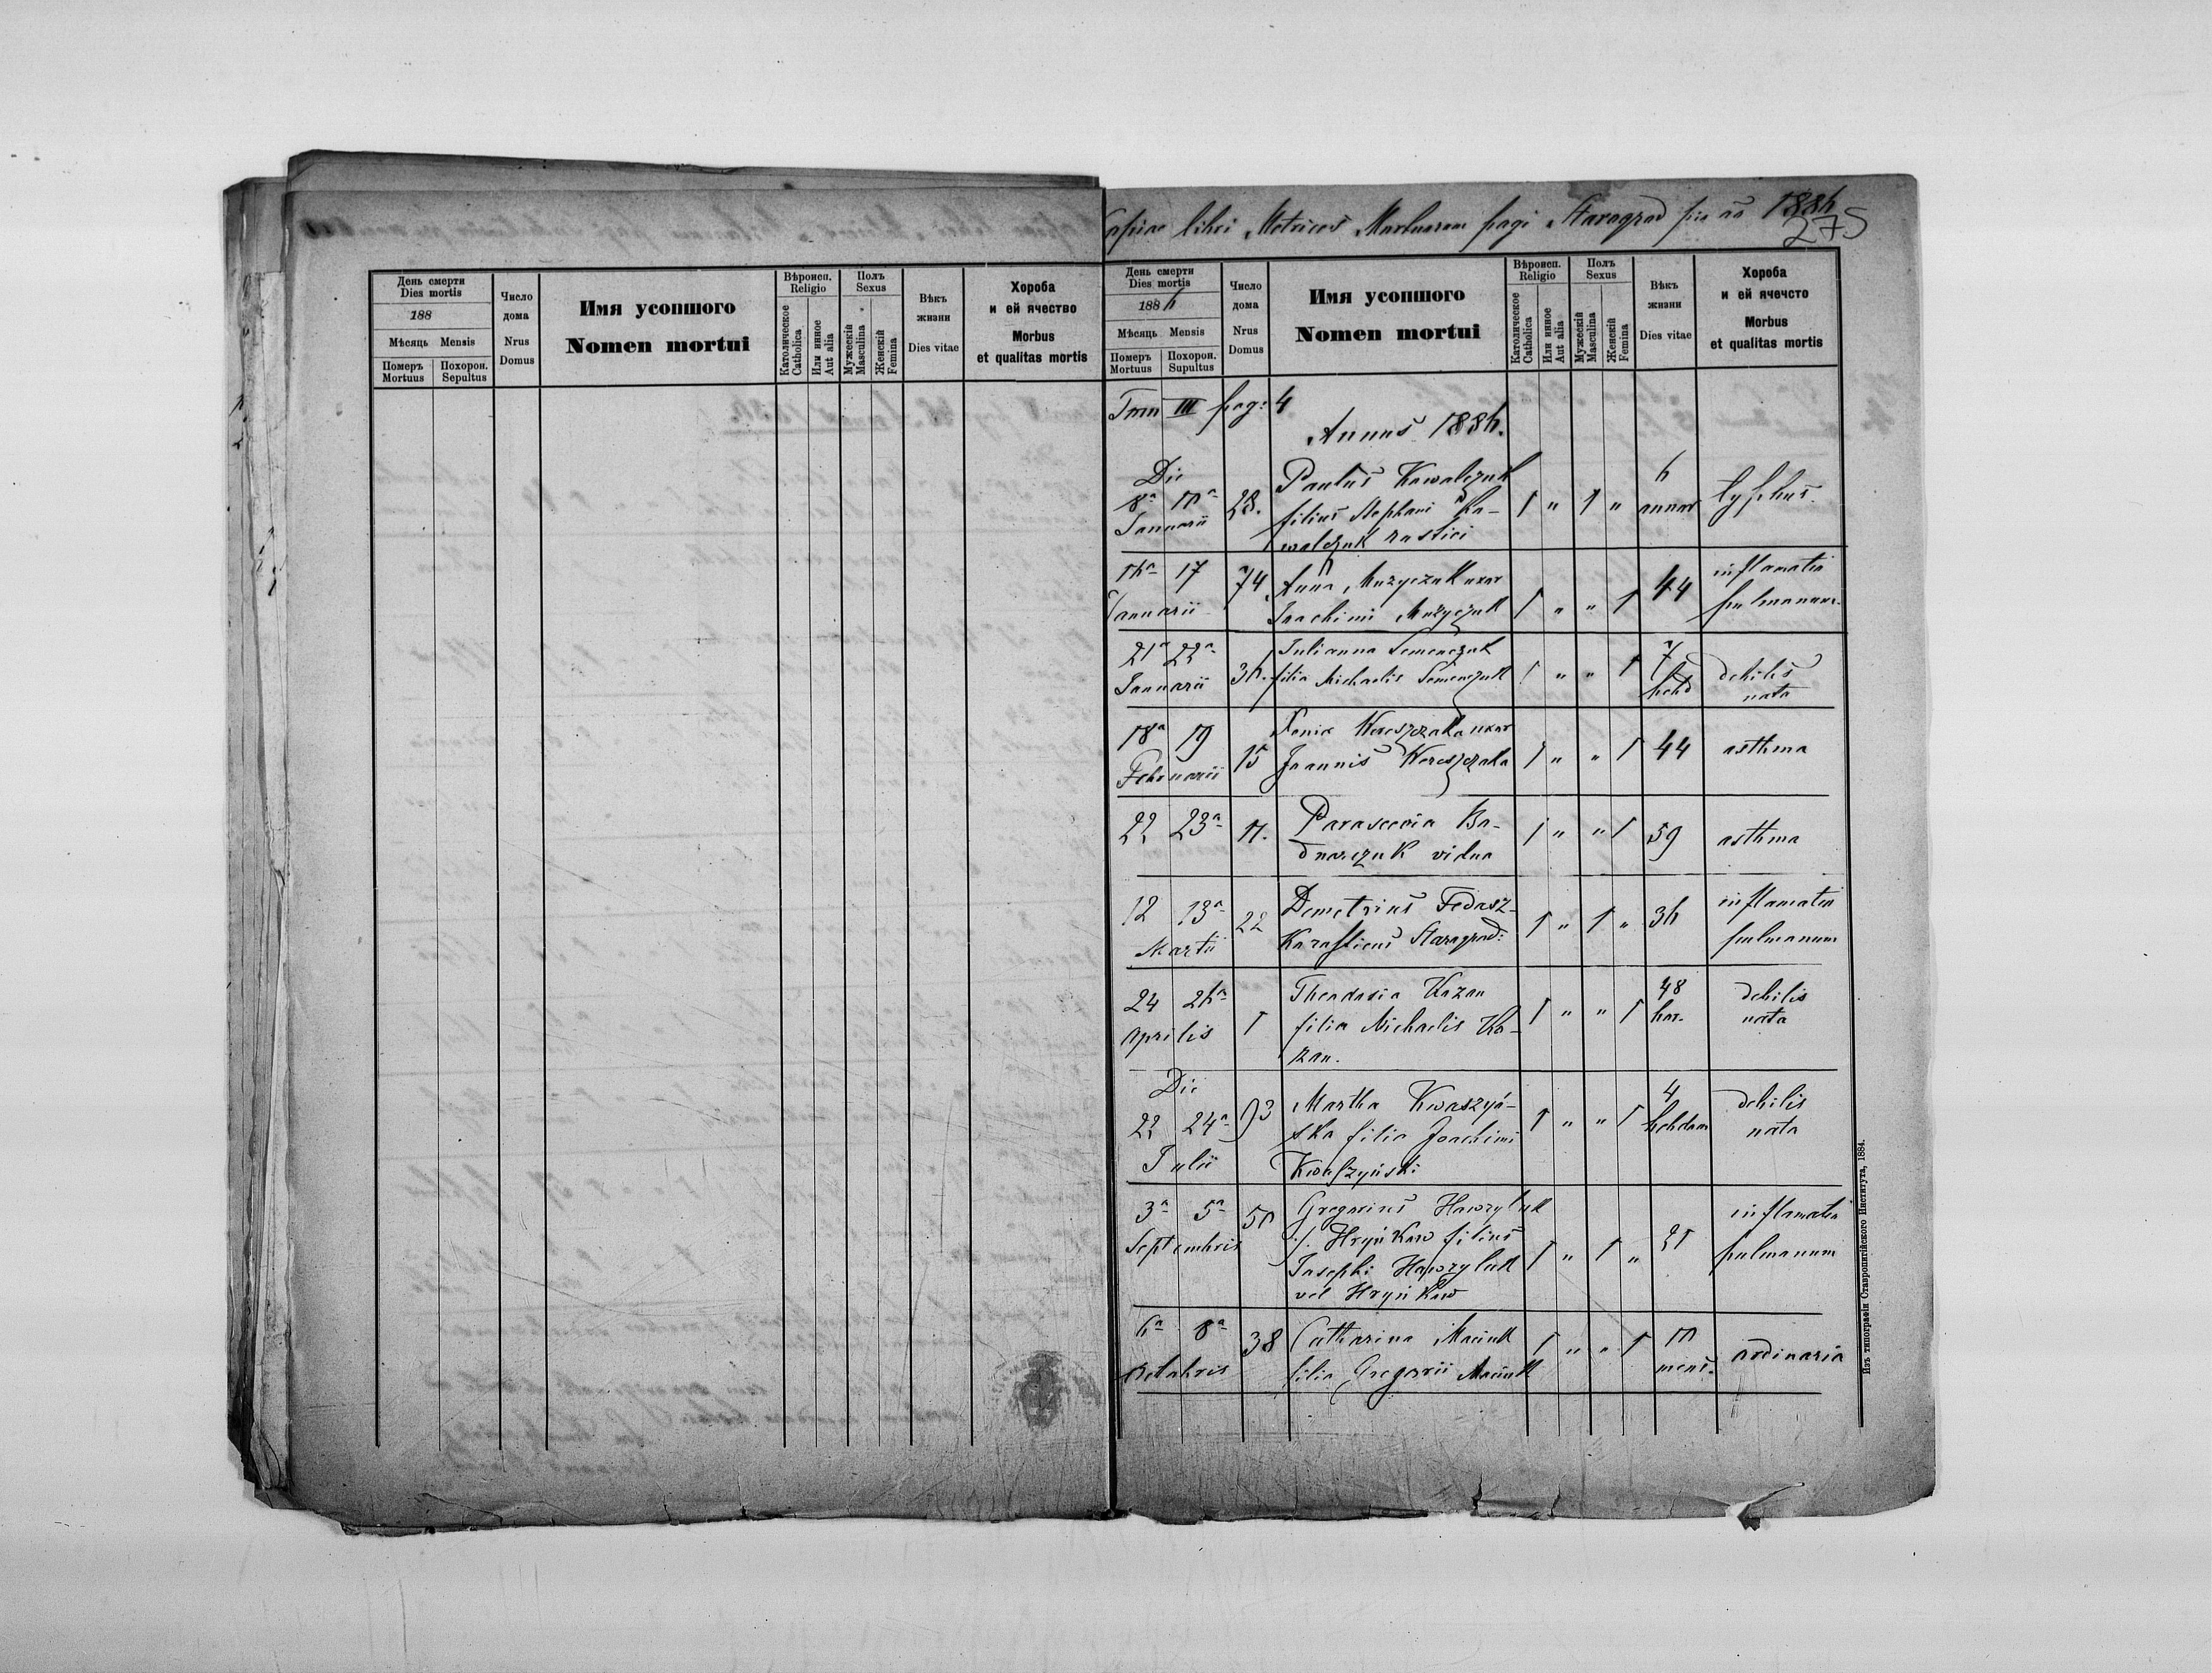 Copiae libri Metrices Mortuorum pagi Starogrod pro ao 1886
275
День смерти
Dies mortis
188
Мѣсяць Mensis
Померъ
Mortuus
Похорон.
Sepultus
Число
дома
Nrus
Domus
Имя усопшого
Nomen mortui
Вѣроисп.
Religio
Католическое
Catholica
Или инное
Aut alia
Полъ
Sexus
Мужескій
Masculina
Женскій
Femina
Вѣкъ
жизни
Dies vitae
Хороба
и ей ячество
Morbus
et qualitas mortis
День смерти
Dies mortis
1886
Мѣсяць Mensis
Померъ
Mortuus
Похорон.
Supultus
Число
дома
Nrus
Domus
Имя усопшого
Nomen mortui
Вѣроисп.
Religio
Католическое
Catholica
Или инное
Aut alia
Полъ
Sexus
Мужескій
Masculina
Женскій
Femina
Вѣкъ
жизни
Dies vitae
Хороба
и ей ячечсто
Morbus
et qualitas mortis
Tom III pag: 4
Annus 1886.
Die
8a 10a 28. Paulus Kowalczuk 1 " 1 " 6 typhus.
Januarii filius Stephani Ko- annor
walczuk rustici
16a 17 74 Anna Muzyczuk uxor 1 " " 1 44 inflamatio
Januarii Joachimi Muzyczuk pulmonum.
21a 22a 30. Julianna Semenczuk 1 " " 1 7 debilis
Januarii filia Michaelis Semenczuk hebd nata
18a 19 15 Xenia Wereszczaka uxor 1 " " 1 44 asthma
Februarii Joannis Wereszczaka
22 23a 11. Parascevia Bo- 1 " " 1 59 asthma
dnarczuk vidua
12 13a 22 Demetrius Fedasz- 1 " 1 " 36 inflamatio
Martii Starogrod: pulmonum
24 26a 1 Theodosia Kozan 1 " " 1 48 debilis
Aprilis filia Michaelis Ko- hor. nata
zan.
Die
22 24a 93 Martha Kwaszyń- 1 " " 1 4 debilis
Julii ska filia Joachimi hebdom nata
Kwaszyński
3a 5a 50 Gregorius Hawryluk 1 " 1 " 21 inflamatio
Septembris Hryńków filius pulmonum
Josephi Hawryluk
vel Hryńków
6a 8a 38 Catharina Maciuk 1 " " 1 10 ordinaria
Octobris filia Gregorii Maciuk mens.
Изъ типографіи Ставропигійского Института, 1884.